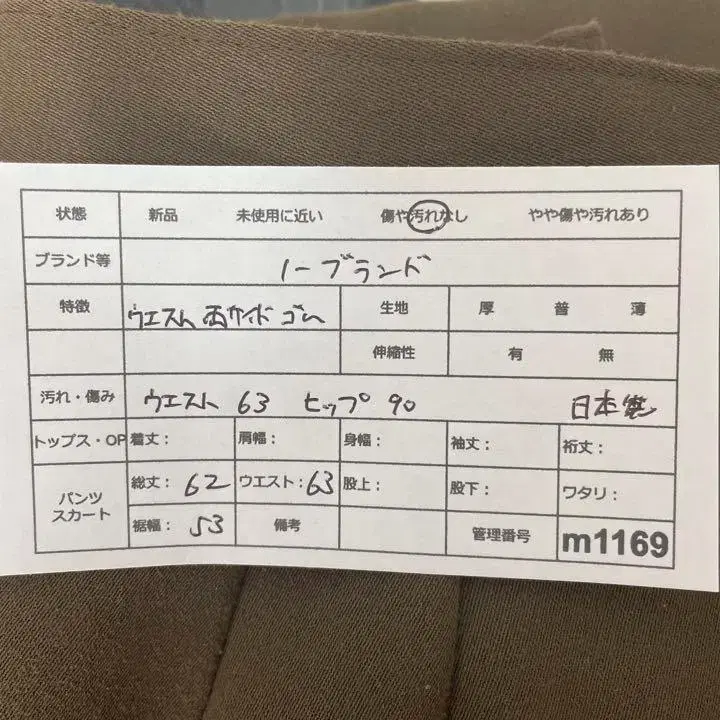 状態 新品 未使用に近い 傷や汚れなし やや傷や汚れあり
ブランド等 ノーブランド
特徴 ウエスト両サイドゴム 生地 厚 普 薄
伸縮性 有 無
汚れ・傷み ウエスト 63 ヒップ 90 日本製
トップス・OP 着丈: 肩幅: 身幅: 袖丈: 裄丈:
パンツ スカート 総丈: 62 ウエスト: 63 股上: 股下: ワタリ:
裾幅: 53 備考 管理番号 m1169